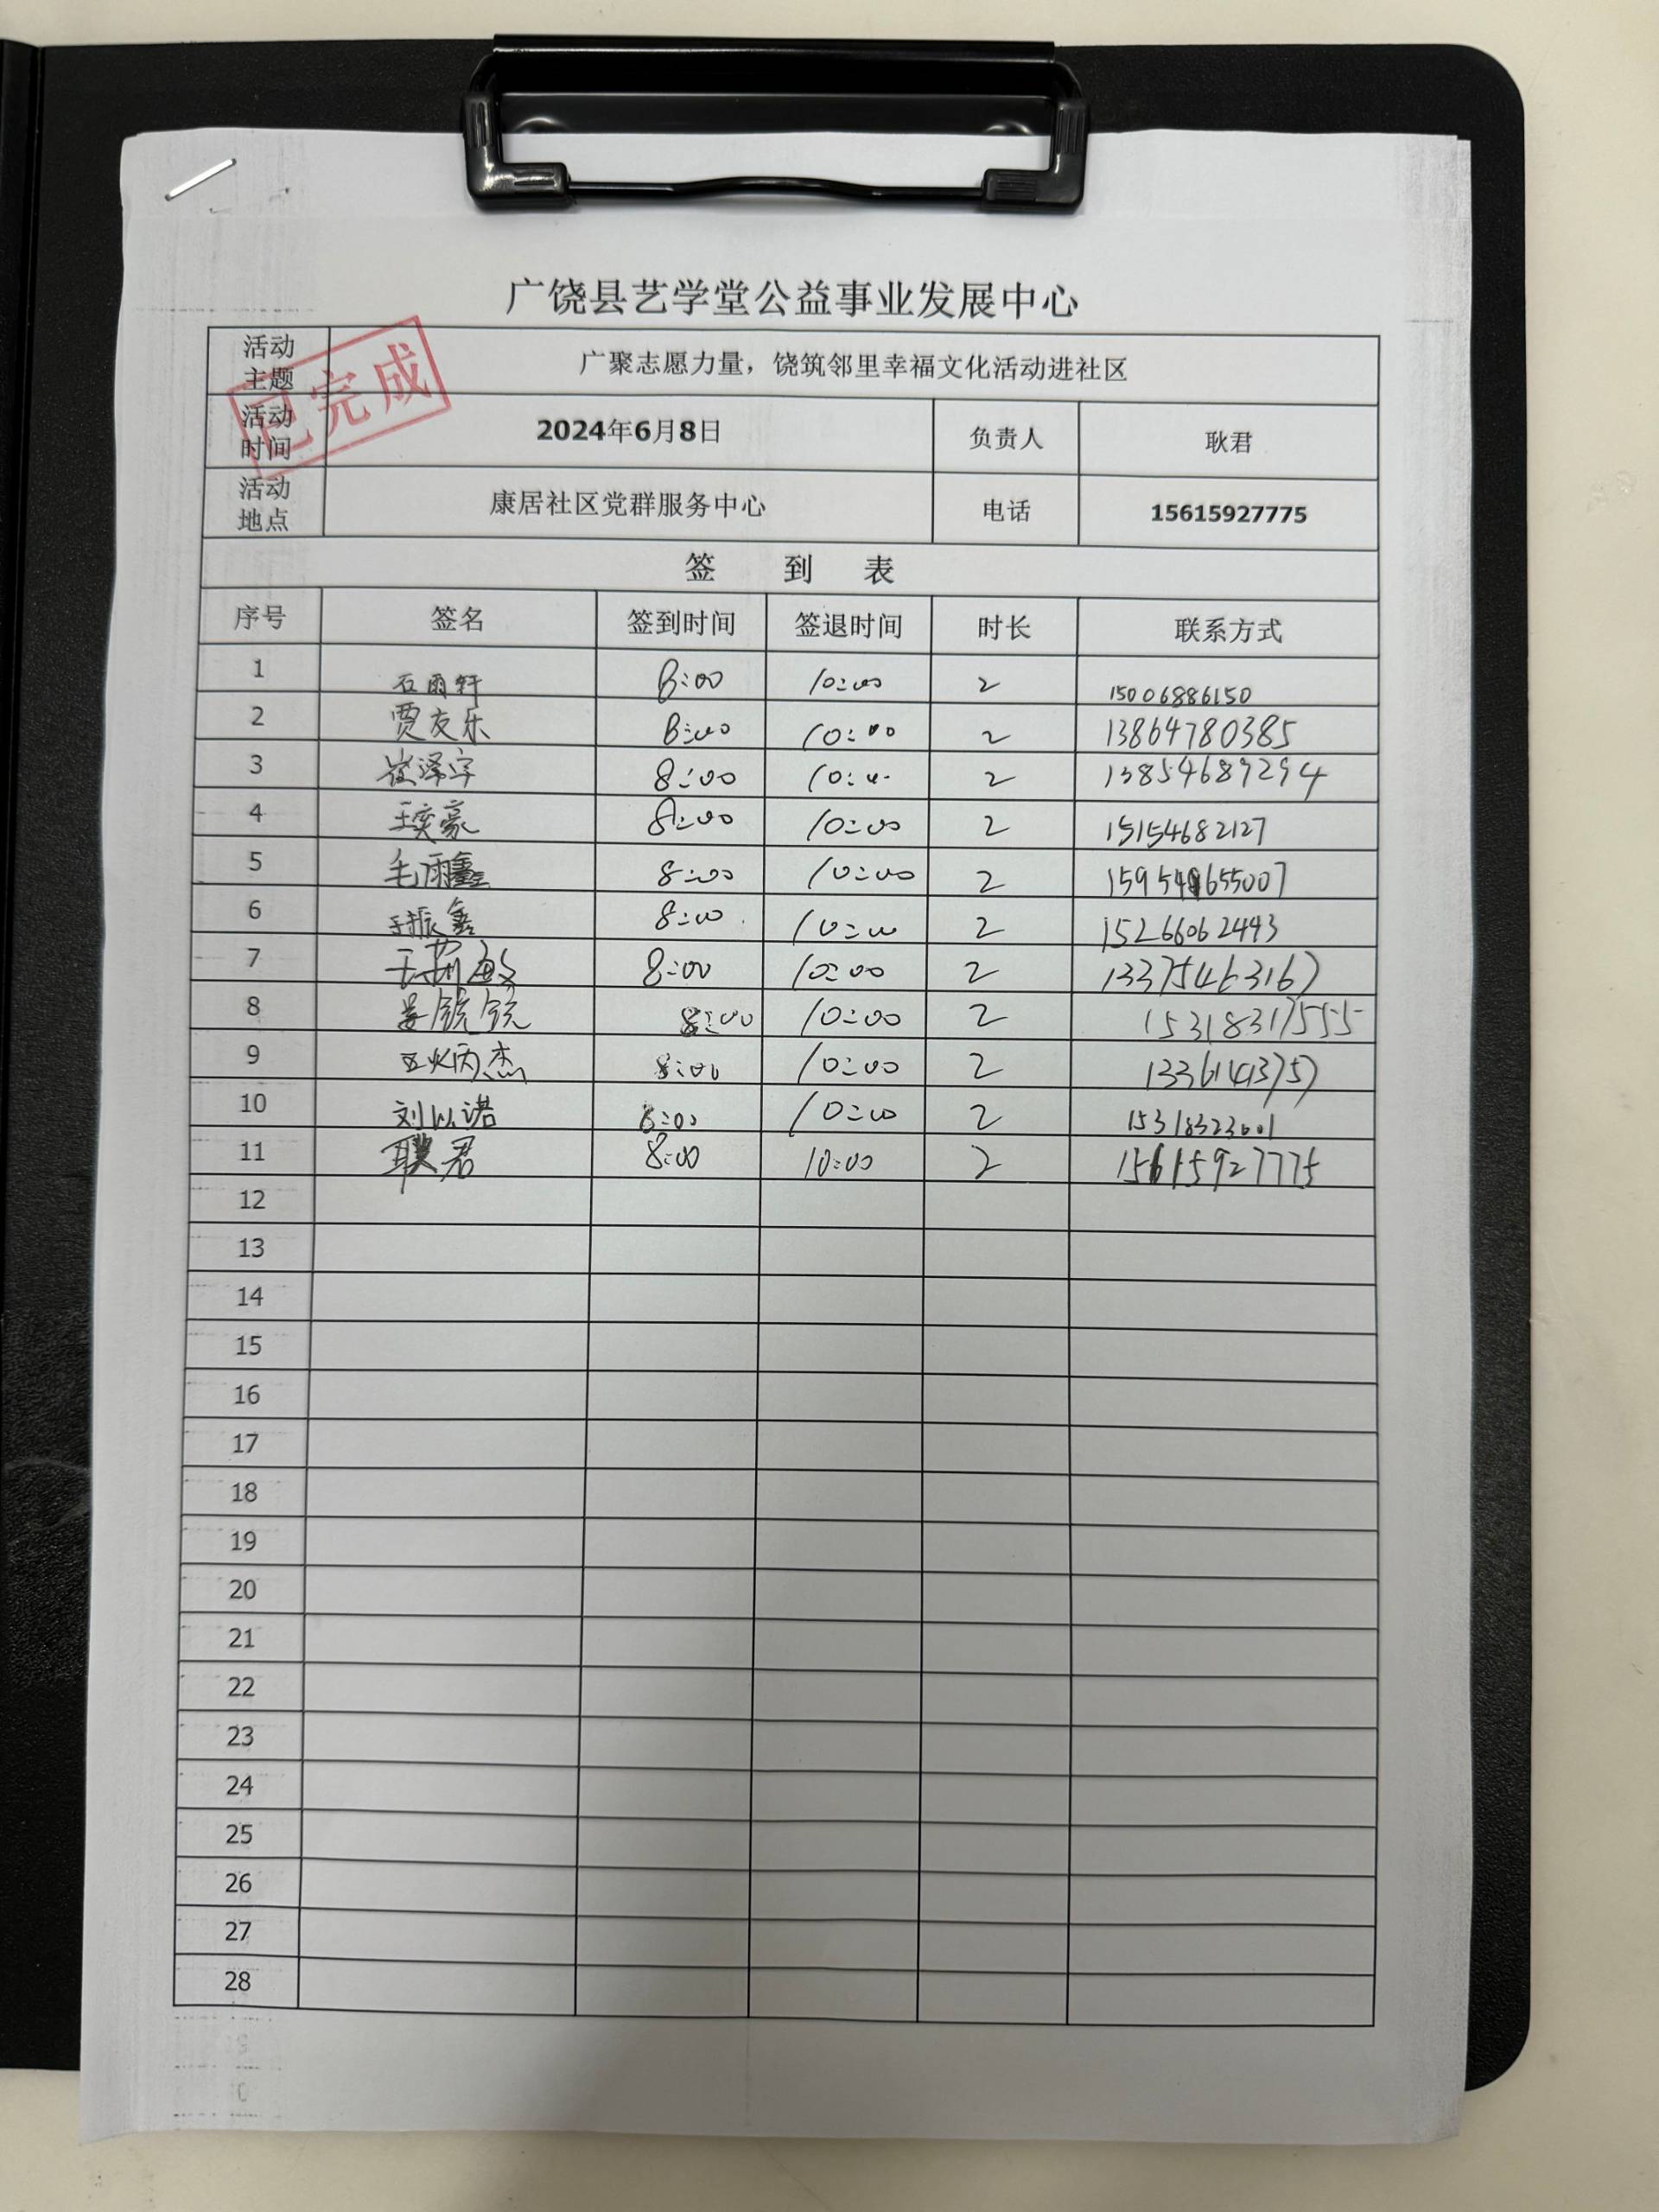 广饶县艺学堂公益事业发展中心
活动主题 广聚志愿力量，饶筑邻里幸福文化活动进社区
已完成
活动时间 2024年6月8日 负责人 耿君
活动地点 康居社区党群服务中心 电话 15615927775
签 到 表
序号 签名 签到时间 签退时间 时长 联系方式
1 石雨轩 8:00 10:00 2 15006886150
2 贾友乐 8:00 10:00 2 13864780385
3 崔泽宇 8:00 10:00 2 13854689294
4 王奕豪 8:00 10:00 2 15154682127
5 毛雨鑫 8:00 10:00 2
6 振鑫 8:00 10:00 2 15266062493
7 8:00 10:00 2 13375463167
8 8:00 10:00 2 15318317555
9 炳杰 8:00 10:00 2 13361443757
10 刘以诺 8:00 10:00 2 15318323601
11 耿君 8:00 10:00 2 15615927775
12
13
14
15
16
17
18
19
20
21
22
23
24
25
26
27
28